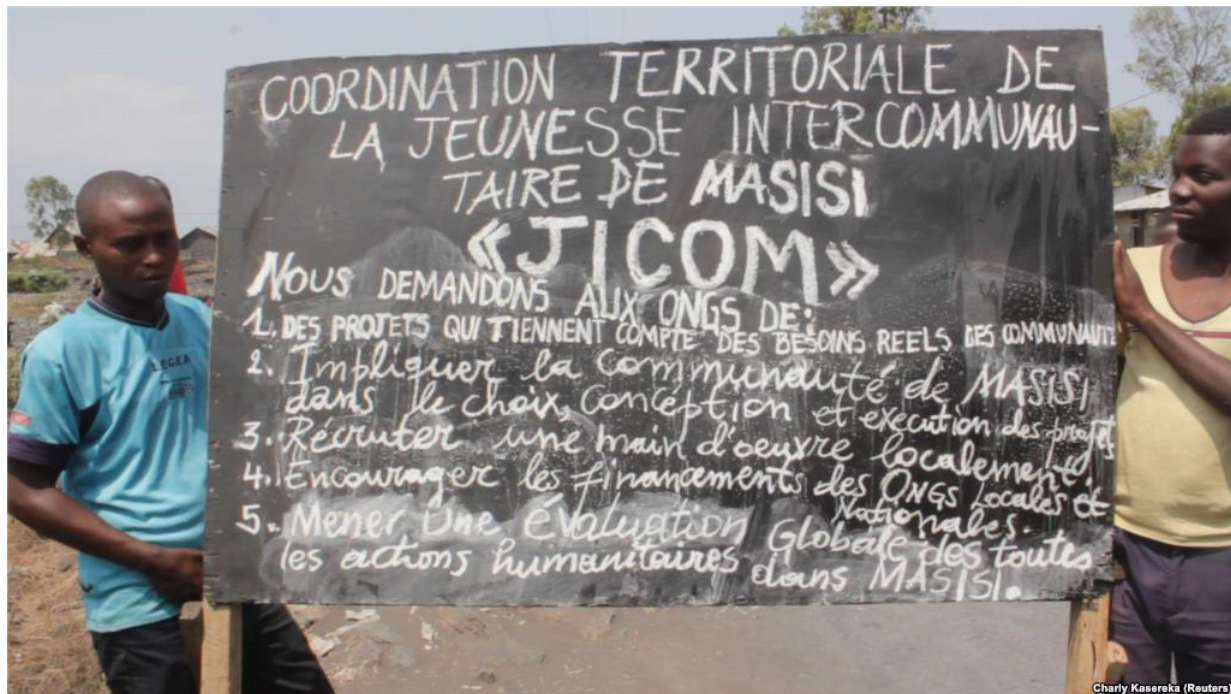 COORDINATION TERRITORIALE DE
LA JEUNESSE INTERCOMMUNAU-
TAIRE DE MASISI
«JICOM»
NOUS DEMANDONS AUX ONGS DE:
1. DES PROJETS QUI TIENNENT COMPTE DES BESOINS REELS DES COMMUNAUTE
2. Impliquer la communauté de MASISI
dans le choix, conception et execution des projets
3. Récruter une main d'oeuvre localement.
4. Encourager les financements des ONGs Locales et
Nationales.
5. Mener Une évaluation Globale des toutes
les actions humanitaires dans MASISI.
LEGEA
Charly Kasereka (Reuters